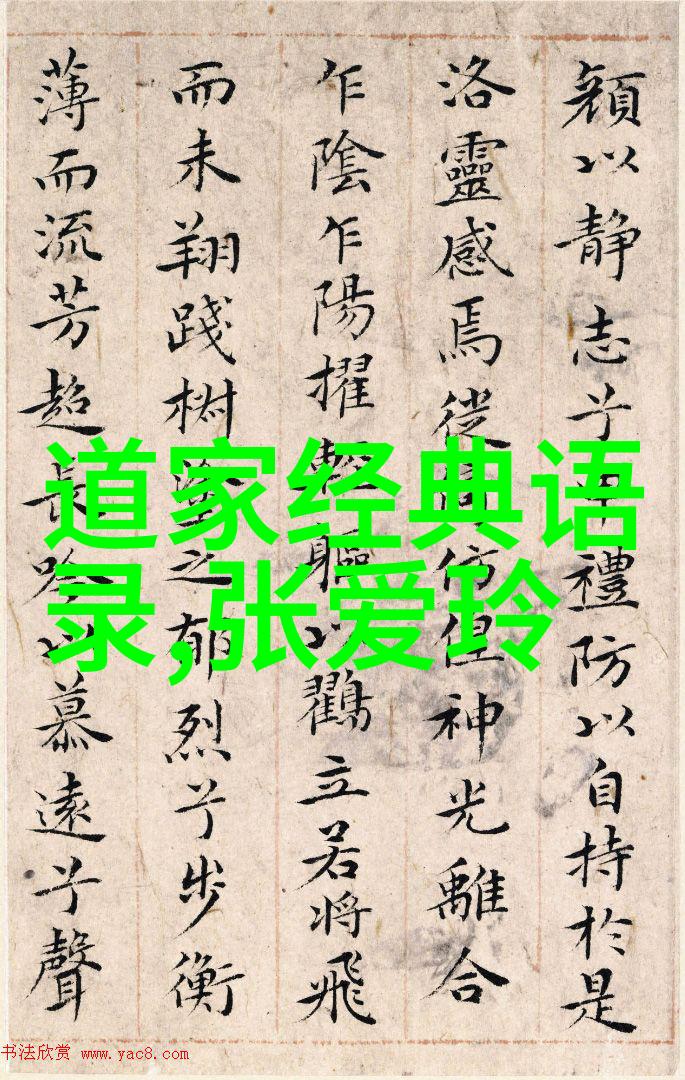 顔以静志兮申禮防以自持於是
洛靈感焉徙倚仿偟神光離合
乍陰乍陽擢輕軀以鸛立若将飛
而未翔踐椒塗之郁烈兮步衡
薄而流芳超長吟以慕遠兮聲
道家经典语
录,张爱玲
书法欣赏 www.yac8.com